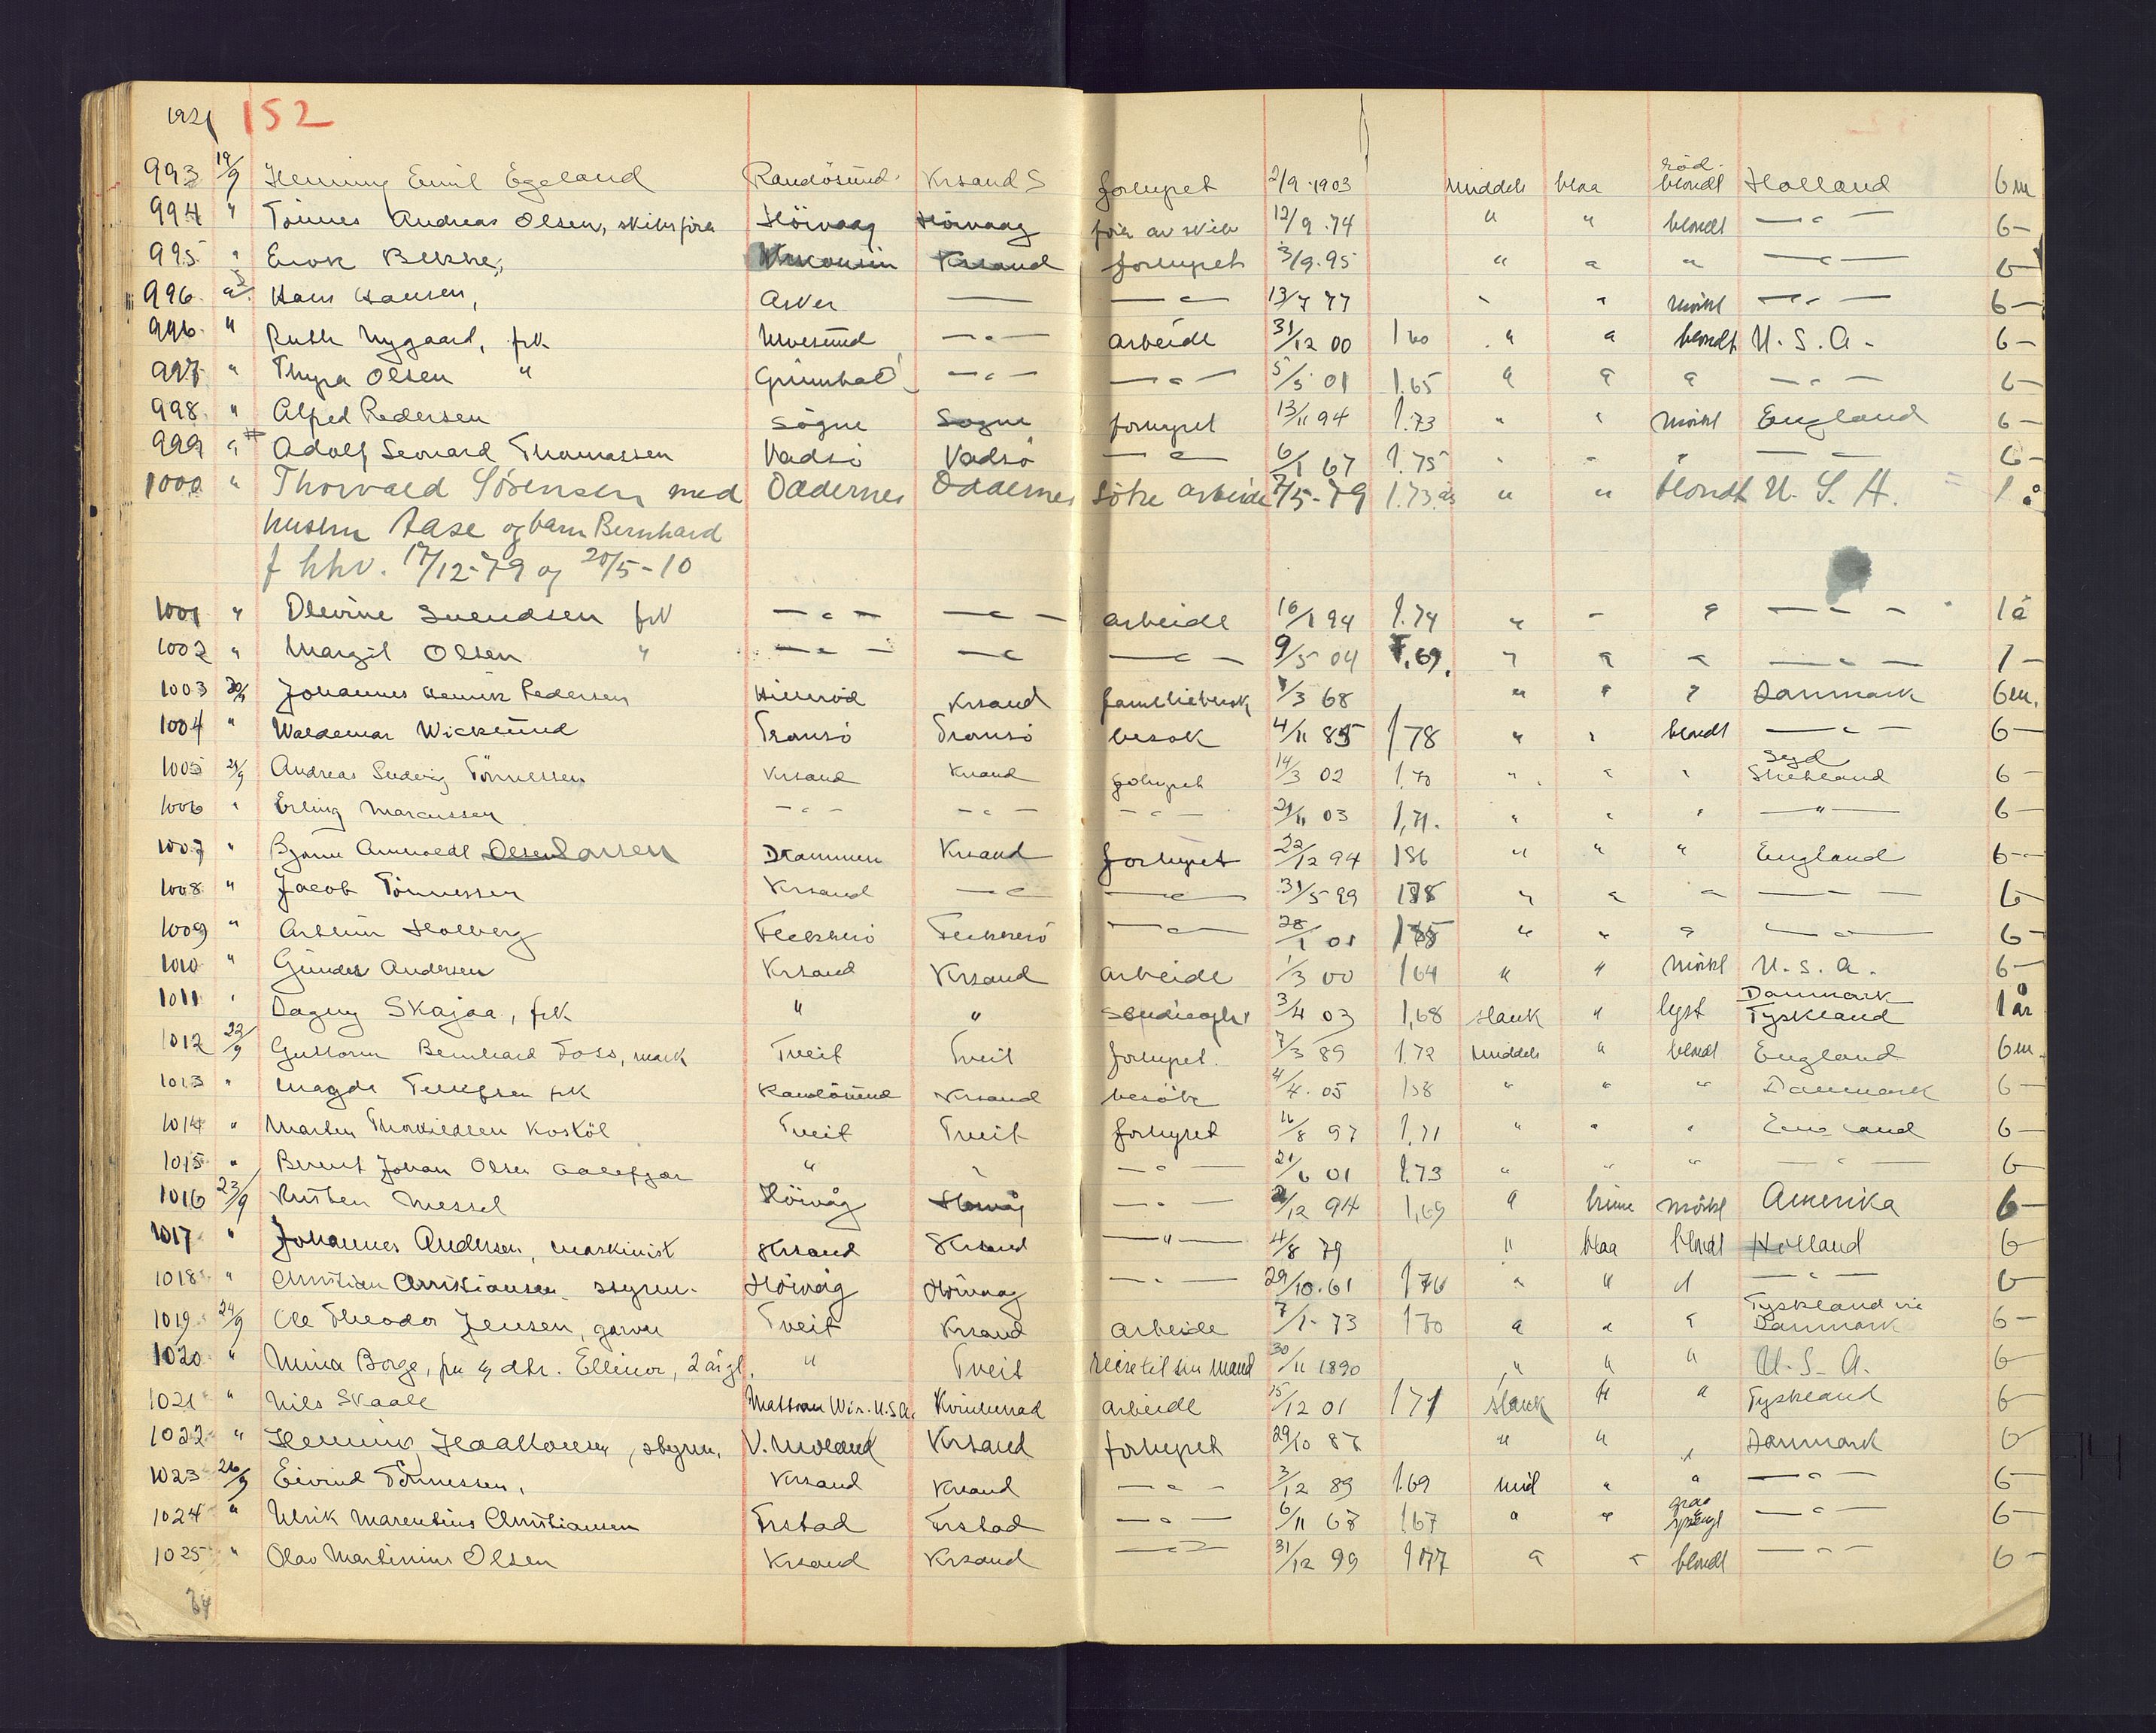 1921 152
993 19/9 Henning Emil Egeland Randösund Krsand S forhyret 2/9 1903 middels blaa röd blondt Holland 6 m
994 " Tönnes Andreas Olsen, skibsförer Höivaag Höivaag för av skib 12/9 74 " " blondt — " — 6 —
995 " Krsand forhyret 3/9 95 " " " — " — 6 —
996 " Hans Hansen, Asker — — " — 13/7 77 " " mörkt — " — 6 —
996 " Ruth Nygaard, frk — " — arbeide 31/12 00 1 60 " " blondt U. S. A. 6 —
997 " Thyra Olsen " — " — — " — 5/5 01 1.65 " " " — " — 6 —
998 " Alfred Pedersen Sögne Sogne forhyret 13/11 94 1.73 " " mörkt England 6 —
999 " Adolf Leonard Thomassen Vadsö Vadsö — " — 6/1 67 1.75 " " " — — 6 —
1000 " Thorvald Sörensen med Oddernes Oddernes Söke arbeide 7/5 - 79 1.73 " " blondt U. S. A. 1 å
hustru Aase og barn Bernhard
f hhv. 17/12-79 og 20/5-10
1001 " Olevine Svendsen frk — " — — " — arbeide 16/1 94 1.74 " — " — " — 1 å
1002 " Margit Olsen " — " — — " — " — 9/5 04 1,69. " " " — " — 1 —
1003 20/9 Johannes Henrik Pedersen Hilleröd Krsand familiebesök 1/3 68 " " " Danmark 6 m.
1004 " Waldemar Wicklund Tromsö Tromsö besök 4/11 85 1 78 " " blondt — " — 6 —
1005 21/9 Andreas Ludvig Tönnessen Krsand Krsand forhyret 14/3 02 1.70 " " " Syd Shetland 6 —
1006 " Erling Marcussen — " — — " — — " — 21/11 03 1,71. " " " — " — 6 —
1007 " Bjarne Arnvoldt Olsen Larsen Drammen Krsand forhyret 22/12 94 186 " " " England 6 —
1008 " Jacob Tönnessen Krsand — " — " — 31/5 99 178 " " " — " — 6 —
1009 " Holberg Flekkerö Flekkerö — " — 28/1 01 185 " " " — " — 6 —
1010 " Gunder Andersen Krsand Krsand arbeide 1/3 00 164 " " mörkt U. S. A. 6 —
1011 " Dagny Skajaa, frk " " 3/4 03 1,68 slank " lyst Danmark Tyskland 1 år
1012 22/9 Guttorm Bernhard Foss, mask Tveit Tveit forhyret. 7/3 89 1.72 middels " blondt England 6 m.
1013 " Magda Tellefsen frk Randösund Krsand besöke 4/4 05 158 " " " Danmark 6 —
1014 " Marten Thorkildsen Kostöl Tveit Tveit forhyret 16/8 97 1,71 " " " England 6 —
1015 " Berent Johan Olsen Aalefjær " " — " — 21/6 01 1.73 " " " — " — 6 —
1016 23/9 Kristen Messel Höivåg Höivåg — " — 2/12 94 1,69 " brune mörkt Amerika 6 —
1017 " Johannes Andersen, maskinist Krsand Krsand — " — 4/8 79 " blaa blondt Holland 6
1018 " Christian Christiansen styrm. Höivåg Höivaag — " — 29/10.61 1 76 " " " — " — 6
1019 24/9 Ole Theodor Jensen, garver Tveit Krsand arbeide 7/1-73 170 " " " Tyskland via Danmark 6 —
1020 " Mina Borge, fru og dtr. Ellinor, 2 år gl. " Tveit Reise til sin mand 30/11 1890 " " " U. S. A. 6
1021 " Nils Skaale Wis. U.S.A. Kvinesdal arbeide 15/12 01 171 slank " " Tyskland 6
1022 " Henning Haaltonsen, styrm. V. Moland Krsand forhyret 29/10 87 " " " Danmark 6
1023 26/9 Eivind Tönnessen, Krsand Krsand — " — 3/12 89 1.69 mid " " — " — 6 —
1024 " Ulrik Marentius Christiansen Frstad Frstad — " — 6/11 68 1.67 " " graa sprengt — " — 6 —
1025 " Olav Martinius Olsen Krsand Krsand — " — 31/12 99 1 77 " " blondt — " — 6 —